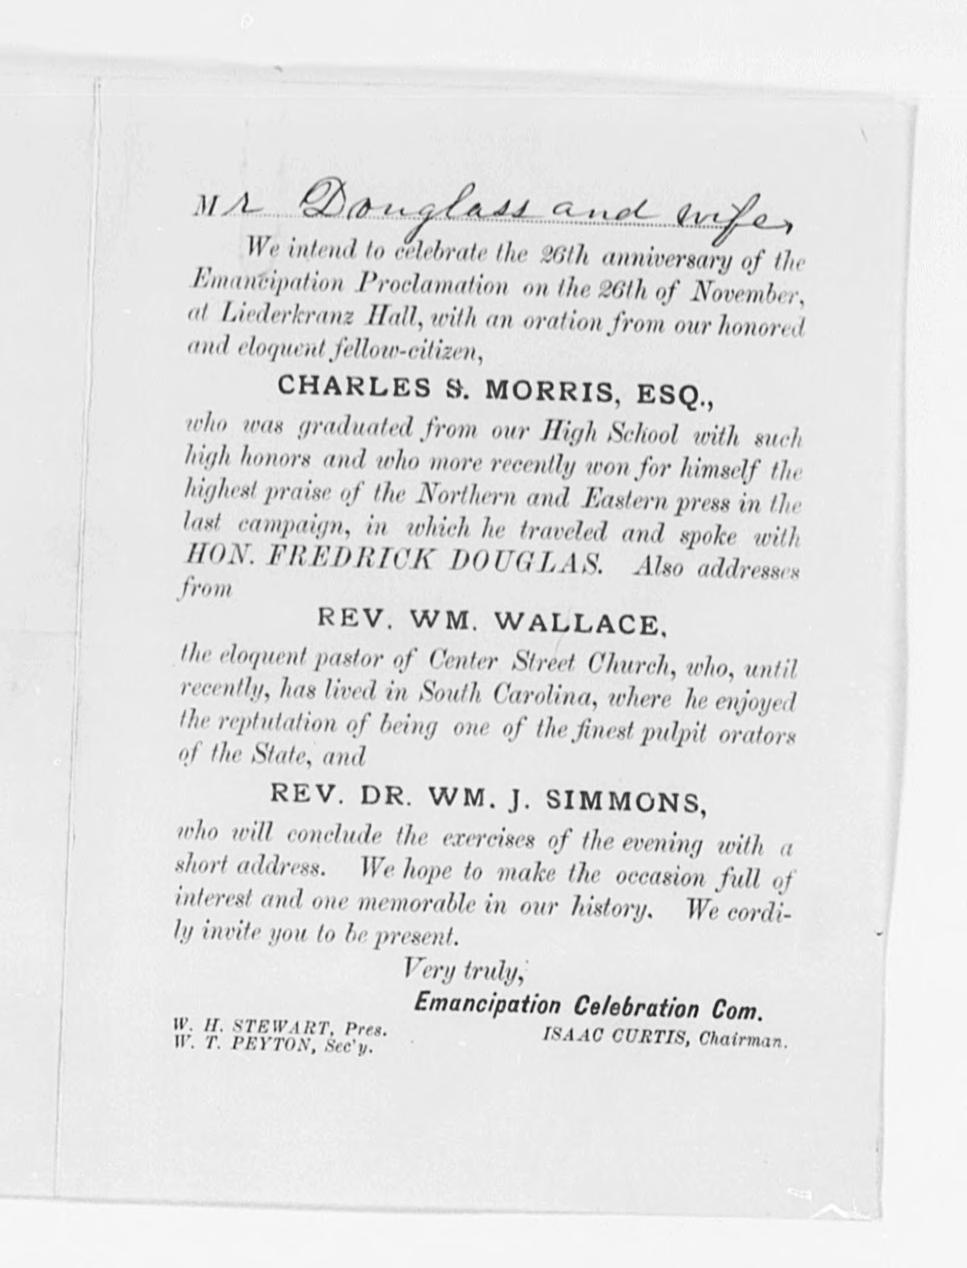 Mr Douglass and wife,
We intend to celebrate the 26th anniversary of the
Emancipation Proclamation on the 26th of November,
at Liederkranz Hall, with an oration from our honored
and eloquent fellow-citizen,
CHARLES S. MORRIS, ESQ.,
who was graduated from our High School with such
high honors and who more recently won for himself the
highest praise of the Northern and Eastern press in the
last campaign, in which he traveled and spoke with
HON. FREDRICK DOUGLAS. Also addresses
from
REV. WM. WALLACE,
the eloquent pastor of Center Street Church, who, until
recently, has lived in South Carolina, where he enjoyed
the reptutation of being one of the finest pulpit orators
of the State, and
REV. DR. WM. J. SIMMONS,
who will conclude the exercises of the evening with a
short address. We hope to make the occasion full of
interest and one memorable in our history. We cordi-
ly invite you to be present.
Very truly,
Emancipation Celebration Com.
W. H. STEWART, Pres.
ISAAC CURTIS, Chairman.
W. T. PEYTON, Sec'y.